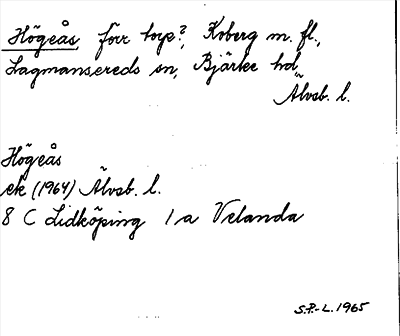 Högeås, förr torp?, Koberg m. fl.,
Lagmansereds sn, Bjärke hd,
Älvsb. l.
Högeås
ek (1964) Älvsb. l.
8 C Lidköping 1 a Velanda
S.P.-L. 1965